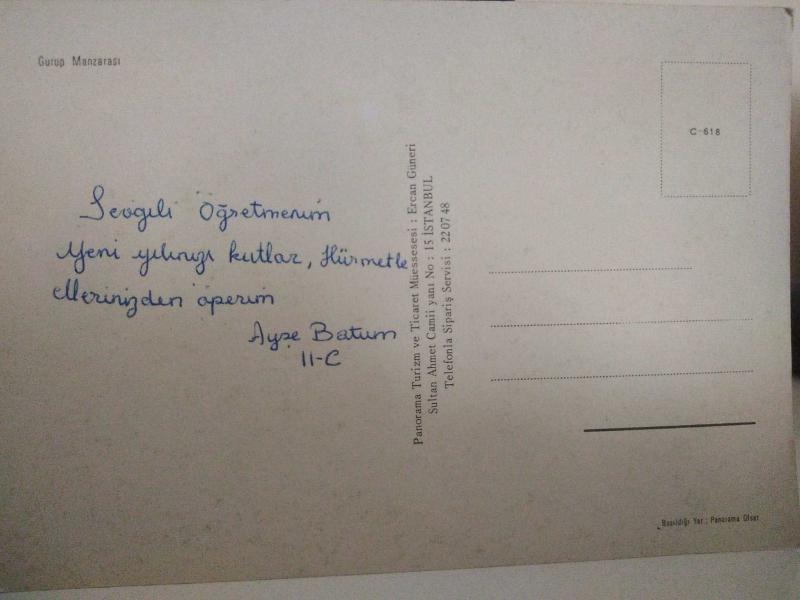 Gurup Manzarası
C-618
Sevgili Öğretmenim
Yeni yılınızı kutlar, Hürmetle
ellerinizden öperim
Ayşe Batum
11-C
Panorama Turizm ve Ticaret Müessesesi : Ercan Güneri
Sultan Ahmet Camii yanı No : 15 İSTANBUL
Telefonla Sipariş Servisi : 22 07 48
Basıldığı Yer : Panorama Ofset